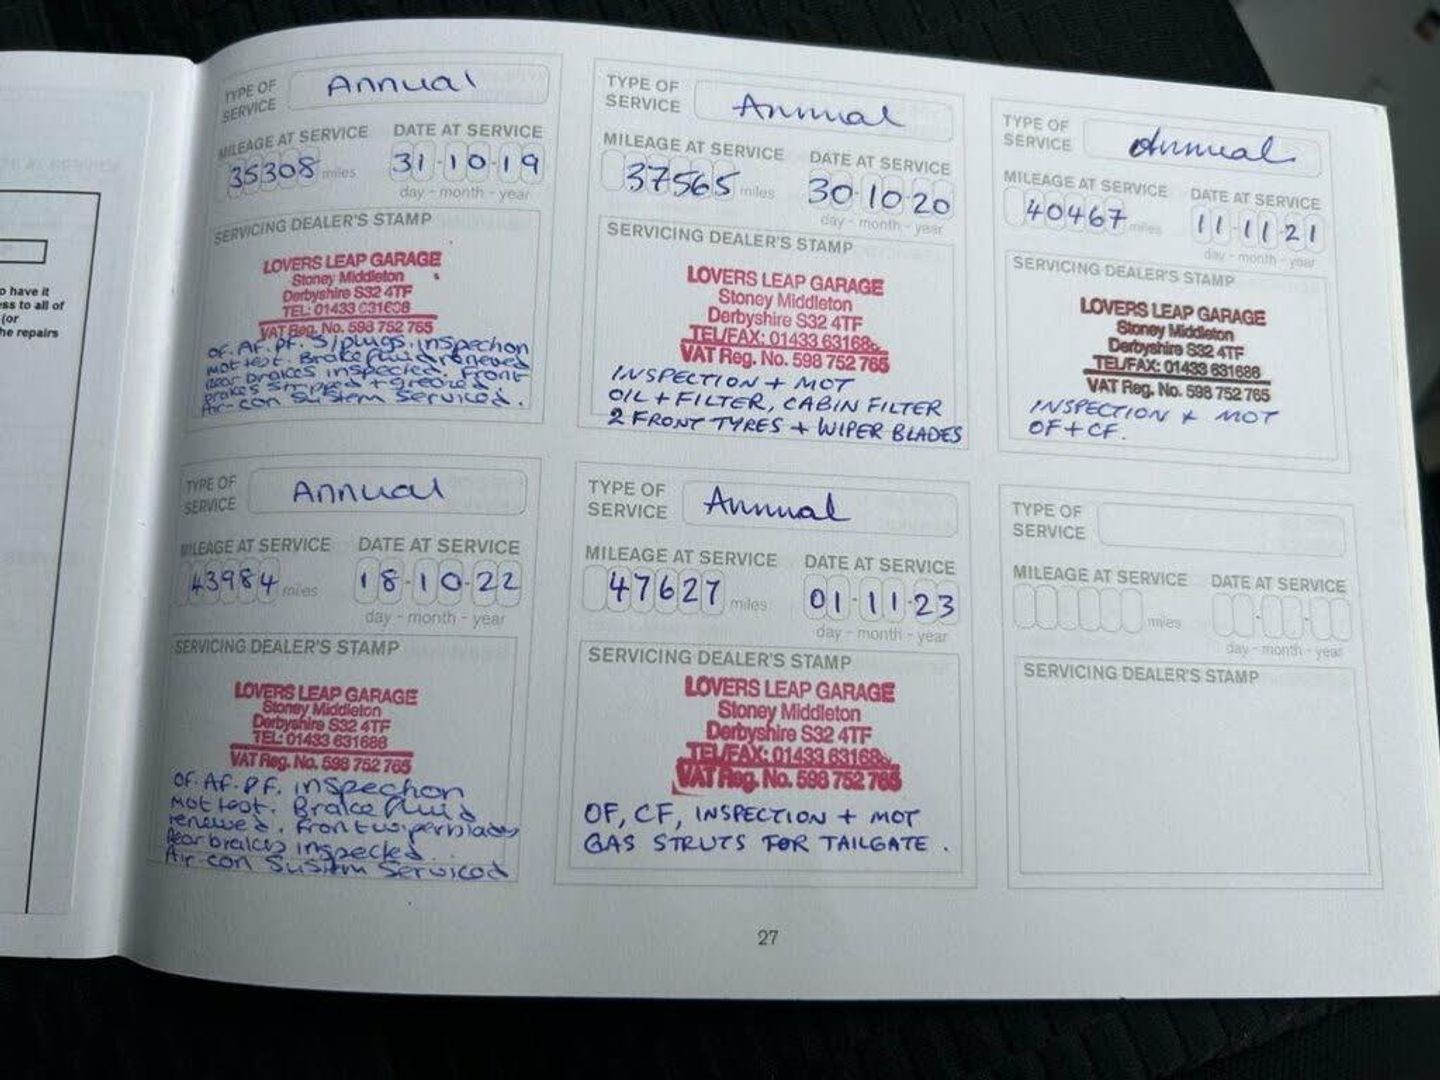 o have it
ess to all of
(or
he repairs
TYPE OF
SERVICE
Annual
MILEAGE AT SERVICE
DATE AT SERVICE
35308 miles
31-10-19
day - month - year
SERVICING DEALER'S STAMP
LOVERS LEAP GARAGE
Stoney Middleton
Derbyshire S32 4TF
TEL: 01433 631688
VAT Reg. No. 598 752 765
OF. AF. PF. S/plugs. inspection
MOT test. Brake fluid renewed
Rear brakes inspected. Front
brakes stripped + greased
Air-con System Serviced.
TYPE OF
SERVICE
Annual
MILEAGE AT SERVICE
DATE AT SERVICE
37565 miles
30-10-20
day - month - year
SERVICING DEALER'S STAMP
LOVERS LEAP GARAGE
Stoney Middleton
Derbyshire S32 4TF
TEL/FAX: 01433 631688
VAT Reg. No. 598 752 765
INSPECTION + MOT
OIL + FILTER, CABIN FILTER
2 FRONT TYRES + WIPER BLADES
TYPE OF
SERVICE
Annual
MILEAGE AT SERVICE
DATE AT SERVICE
40467 miles
11-11-21
day - month - year
SERVICING DEALER'S STAMP
LOVERS LEAP GARAGE
Stoney Middleton
Derbyshire S32 4TF
TEL/FAX: 01433 631686
VAT Reg. No. 598 752 765
INSPECTION + MOT
OF + CF.
TYPE OF
SERVICE
Annual
MILEAGE AT SERVICE
DATE AT SERVICE
43984 miles
18-10-22
day - month - year
SERVICING DEALER'S STAMP
LOVERS LEAP GARAGE
Stoney Middleton
Derbyshire S32 4TF
TEL: 01433 631688
VAT Reg. No. 598 752 765
OF. AF. PF. inspection
MOT test. Brake fluid
renewed. Front wiperblades
Rear brakes inspected.
Air-con System Serviced
TYPE OF
SERVICE
Annual
MILEAGE AT SERVICE
DATE AT SERVICE
47627 miles
01-11-23
day - month - year
SERVICING DEALER'S STAMP
LOVERS LEAP GARAGE
Stoney Middleton
Derbyshire S32 4TF
TEL/FAX: 01433 631688
VAT Reg. No. 598 752 765
OF, CF, INSPECTION + MOT
GAS STRUTS FOR TAILGATE.
TYPE OF
SERVICE
MILEAGE AT SERVICE
DATE AT SERVICE
miles
day - month - year
SERVICING DEALER'S STAMP
27